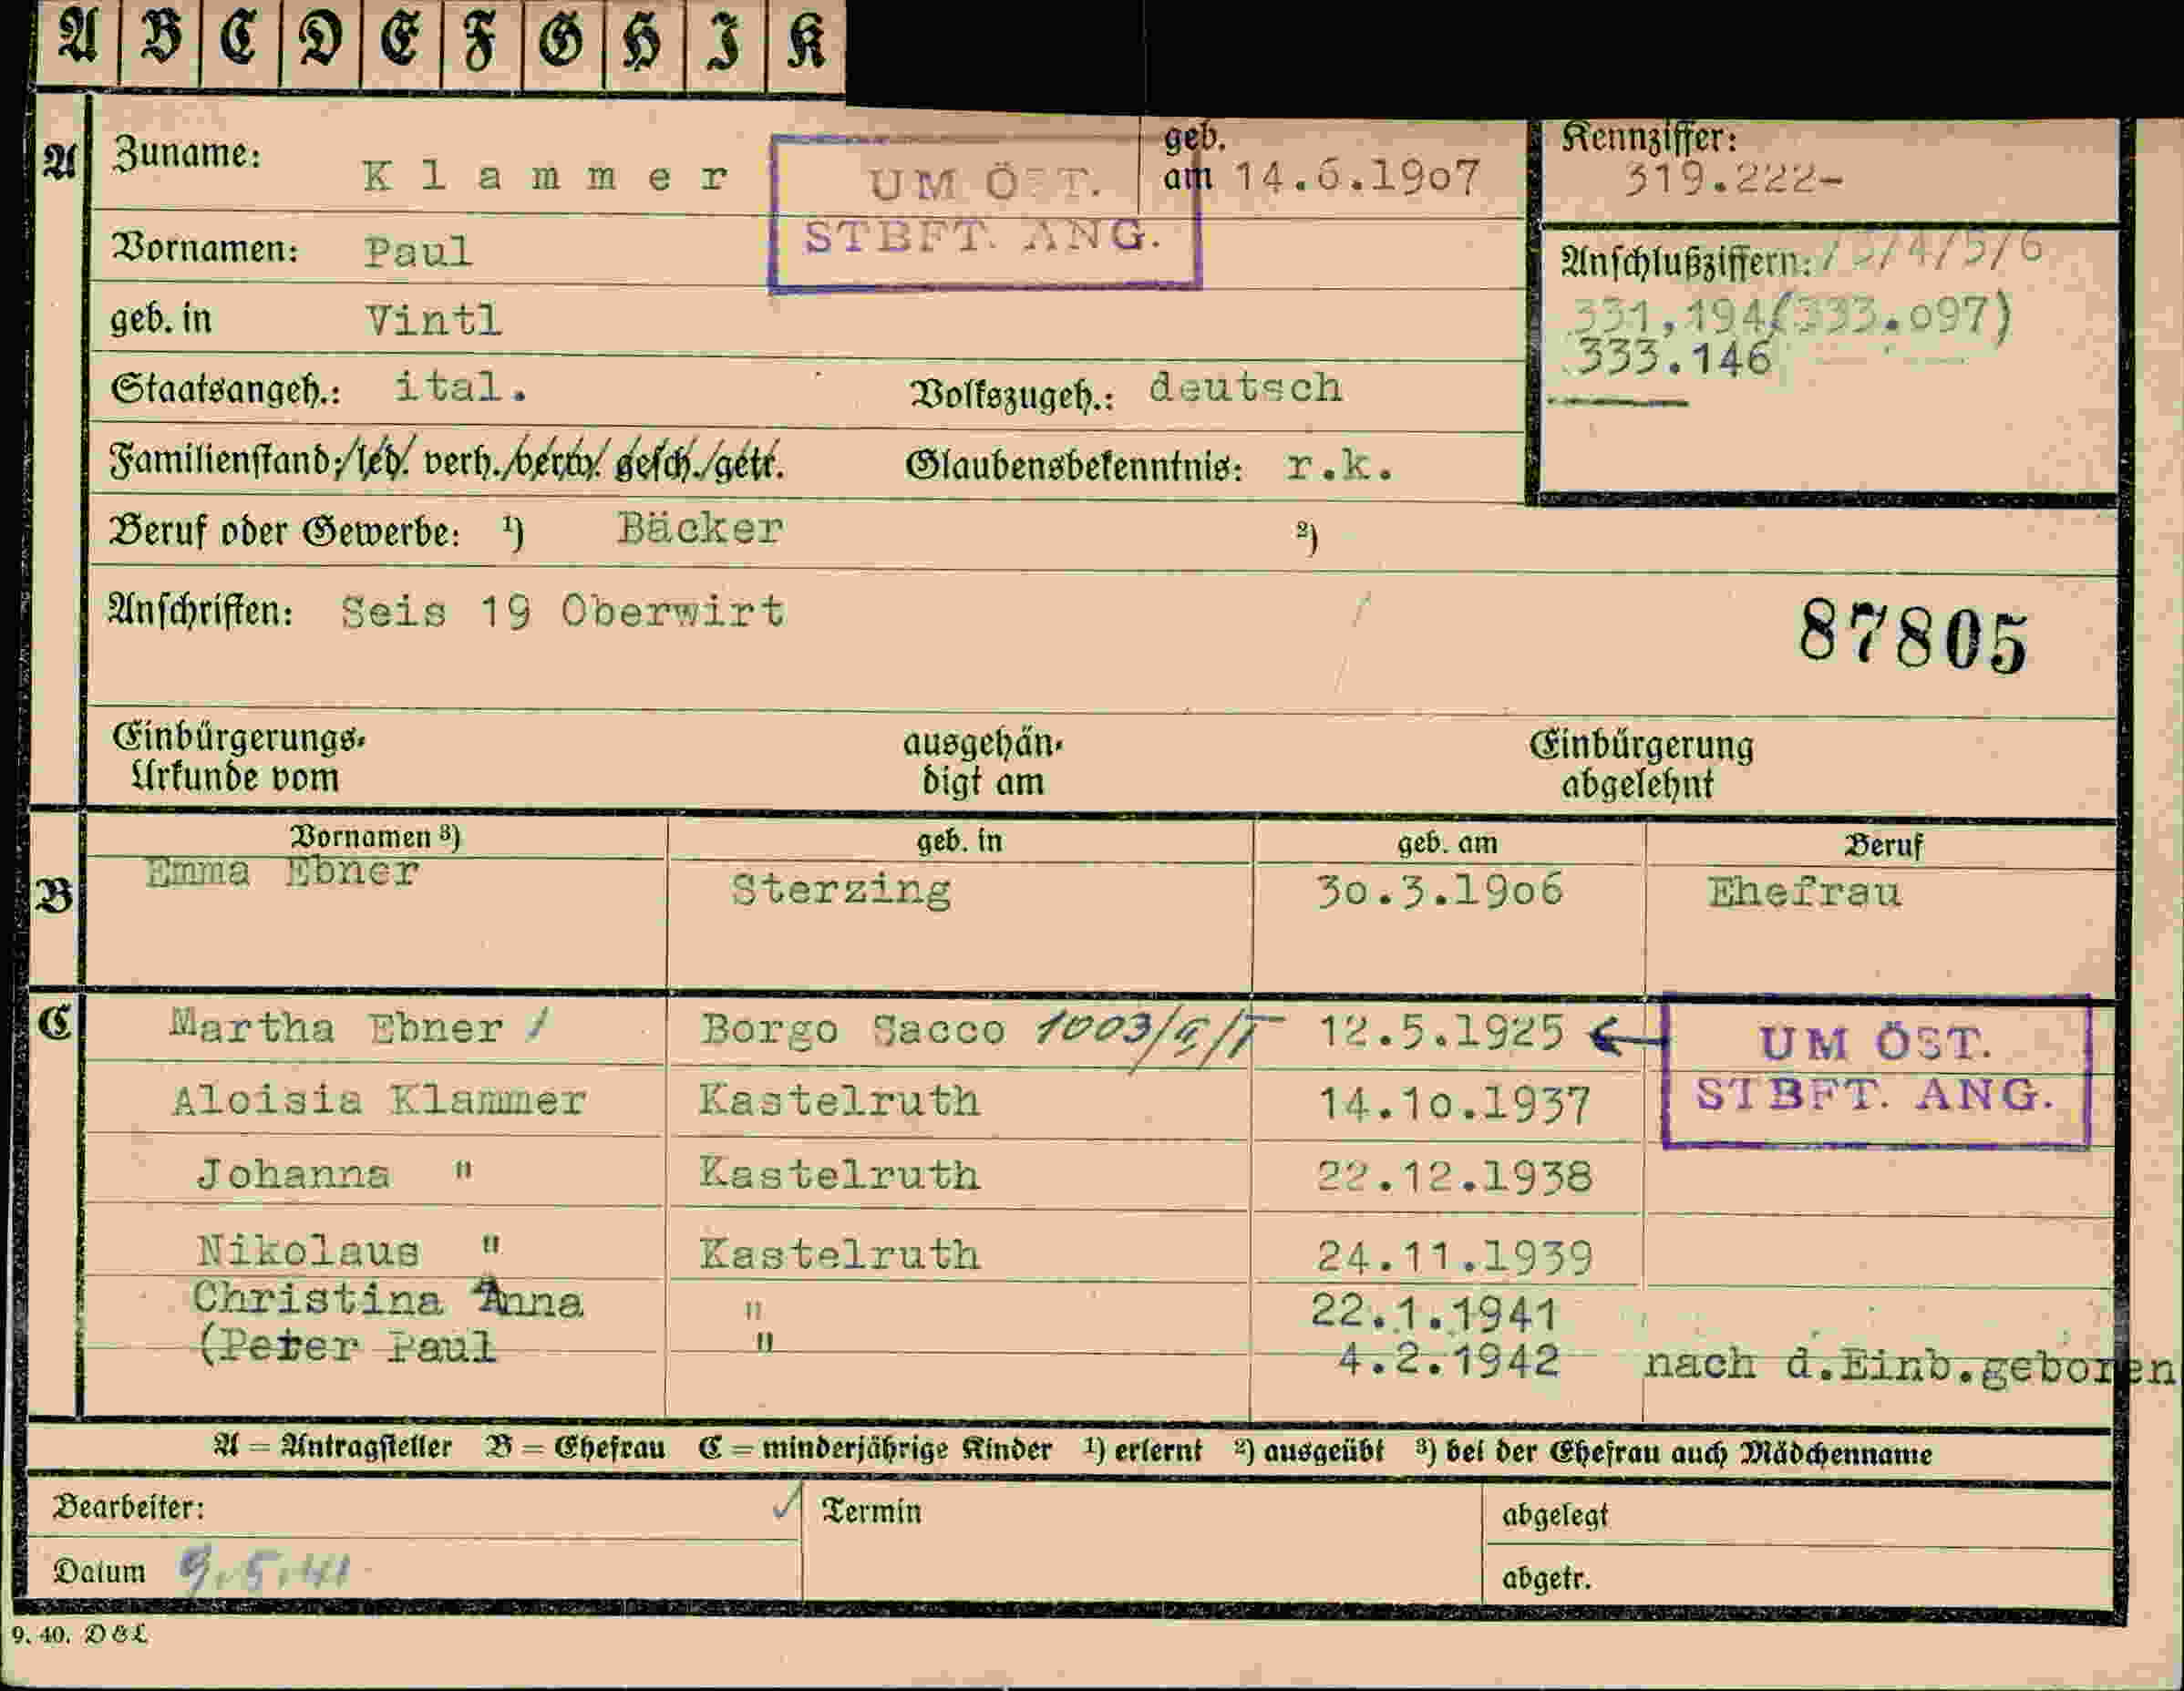 A B C D E F G H I K
A Zuname: Klammer geb. am 14.6.1907 Kennziffer: 319.222-
UM ÖST. STBFT. ANG.
Vornamen: Paul Anschlußziffern: /3/4/5/6
331,194(333.097)
333.146
geb. in Vintl
Staatsangeh.: ital. Volkszugeh.: deutsch
Familienstand: led. verh. verw. gesch. getr. Glaubensbekenntnis: r.k.
Beruf oder Gewerbe: ¹) Bäcker ²)
Anschriften: Seis 19 Oberwirt
87805
Einbürgerungs-Urkunde vom ausgehändigt am Einbürgerung abgelehnt
Vornamen ³) geb. in geb. am Beruf
B Emma Ebner Sterzing 30.3.1906 Ehefrau
C Martha Ebner / Borgo Sacco 12.5.1925 ← UM ÖST. STBFT. ANG.
Aloisia Klammer Kastelruth 14.10.1937
Johanna " Kastelruth 22.12.1938
Nikolaus " Kastelruth 24.11.1939
Christina Anna " 22.1.1941
(Peter Paul " 4.2.1942 nach d.Einb.geboren
A = Antragsteller B = Ehefrau C = minderjährige Kinder ¹) erlernt ²) ausgeübt ³) bei der Ehefrau auch Mädchenname
Bearbeiter: ✓ Termin abgelegt
Datum 9.5.41 abgetr.
9. 40. D&L